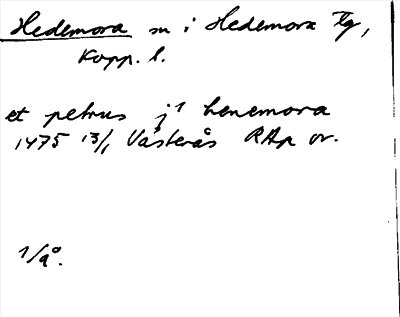 Hedemora sn i Hedemora tg,
Kopp. l.
et petrus j¹ henemora
1475 13/1 Västerås RAp or.
1/a°.